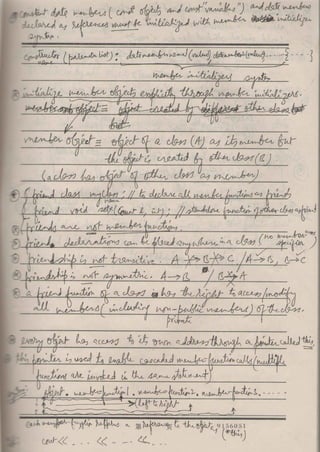 constant data members (const objects and const "variables") and data members
declared as references must be initialized with member initializer
syntax.
constructor (parameter list) : datamembername1 (value), datamember (value), ..... { ---- }
name
member initializers syntax
initialize member objects explicitly through member initializers.
member object ≡ object created by other class but
member object ≡ object of a class (A) as its member but
the object is created by other class (B)
(a class has object of other class as member)
friend class myclass; // to declare all member functions as friends
friend void (count &, int); // standalone function of other class as friend
friends are not member functions.
friend declarations can be placed anywhere in a class (no member access
specifier)
friendship is not transitive. A → B → C / A → B, B → C
friendship is not symmetric. A → B B A
a friend function of a class has the right to access/modify
all members (including non-public members) of the class.
private
every object has access to its own address through a pointer called this
this pointer is used to enable cascaded member-function calls (multiple
functions are invoked in the same statement)
object . member-function1 . member-function2 . member-function3 . .....
(left to right)
each member function returns a reference to the object,
(*this)
cout << ... << ... << ...